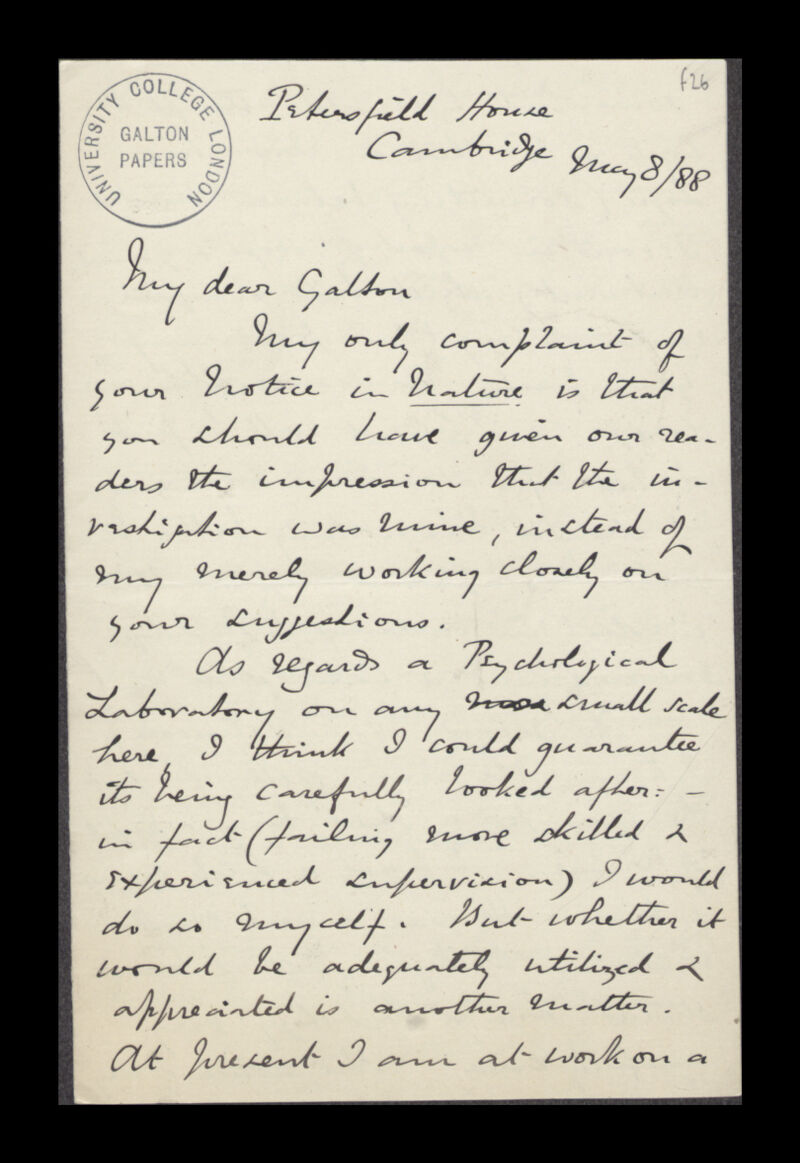 UNIVERSITY COLLEGE LONDON
GALTON
PAPERS
f26
Petersfield House
Cambridge May 8/88
My dear Galton
My only complaint of
your notice in Nature is that
you should have given our rea-
ders the impression that the in-
vestigation was mine, instead of
my merely working closely on
your suggestions.
As regards a Psychological
Laboratory on any small scale
here, I think I could guarantee
its being carefully looked after: -
in fact (failing more skilled &
experienced supervision) I would
do so myself. But whether it
would be adequately utilized &
appreciated is another matter.
At present I am at work on a